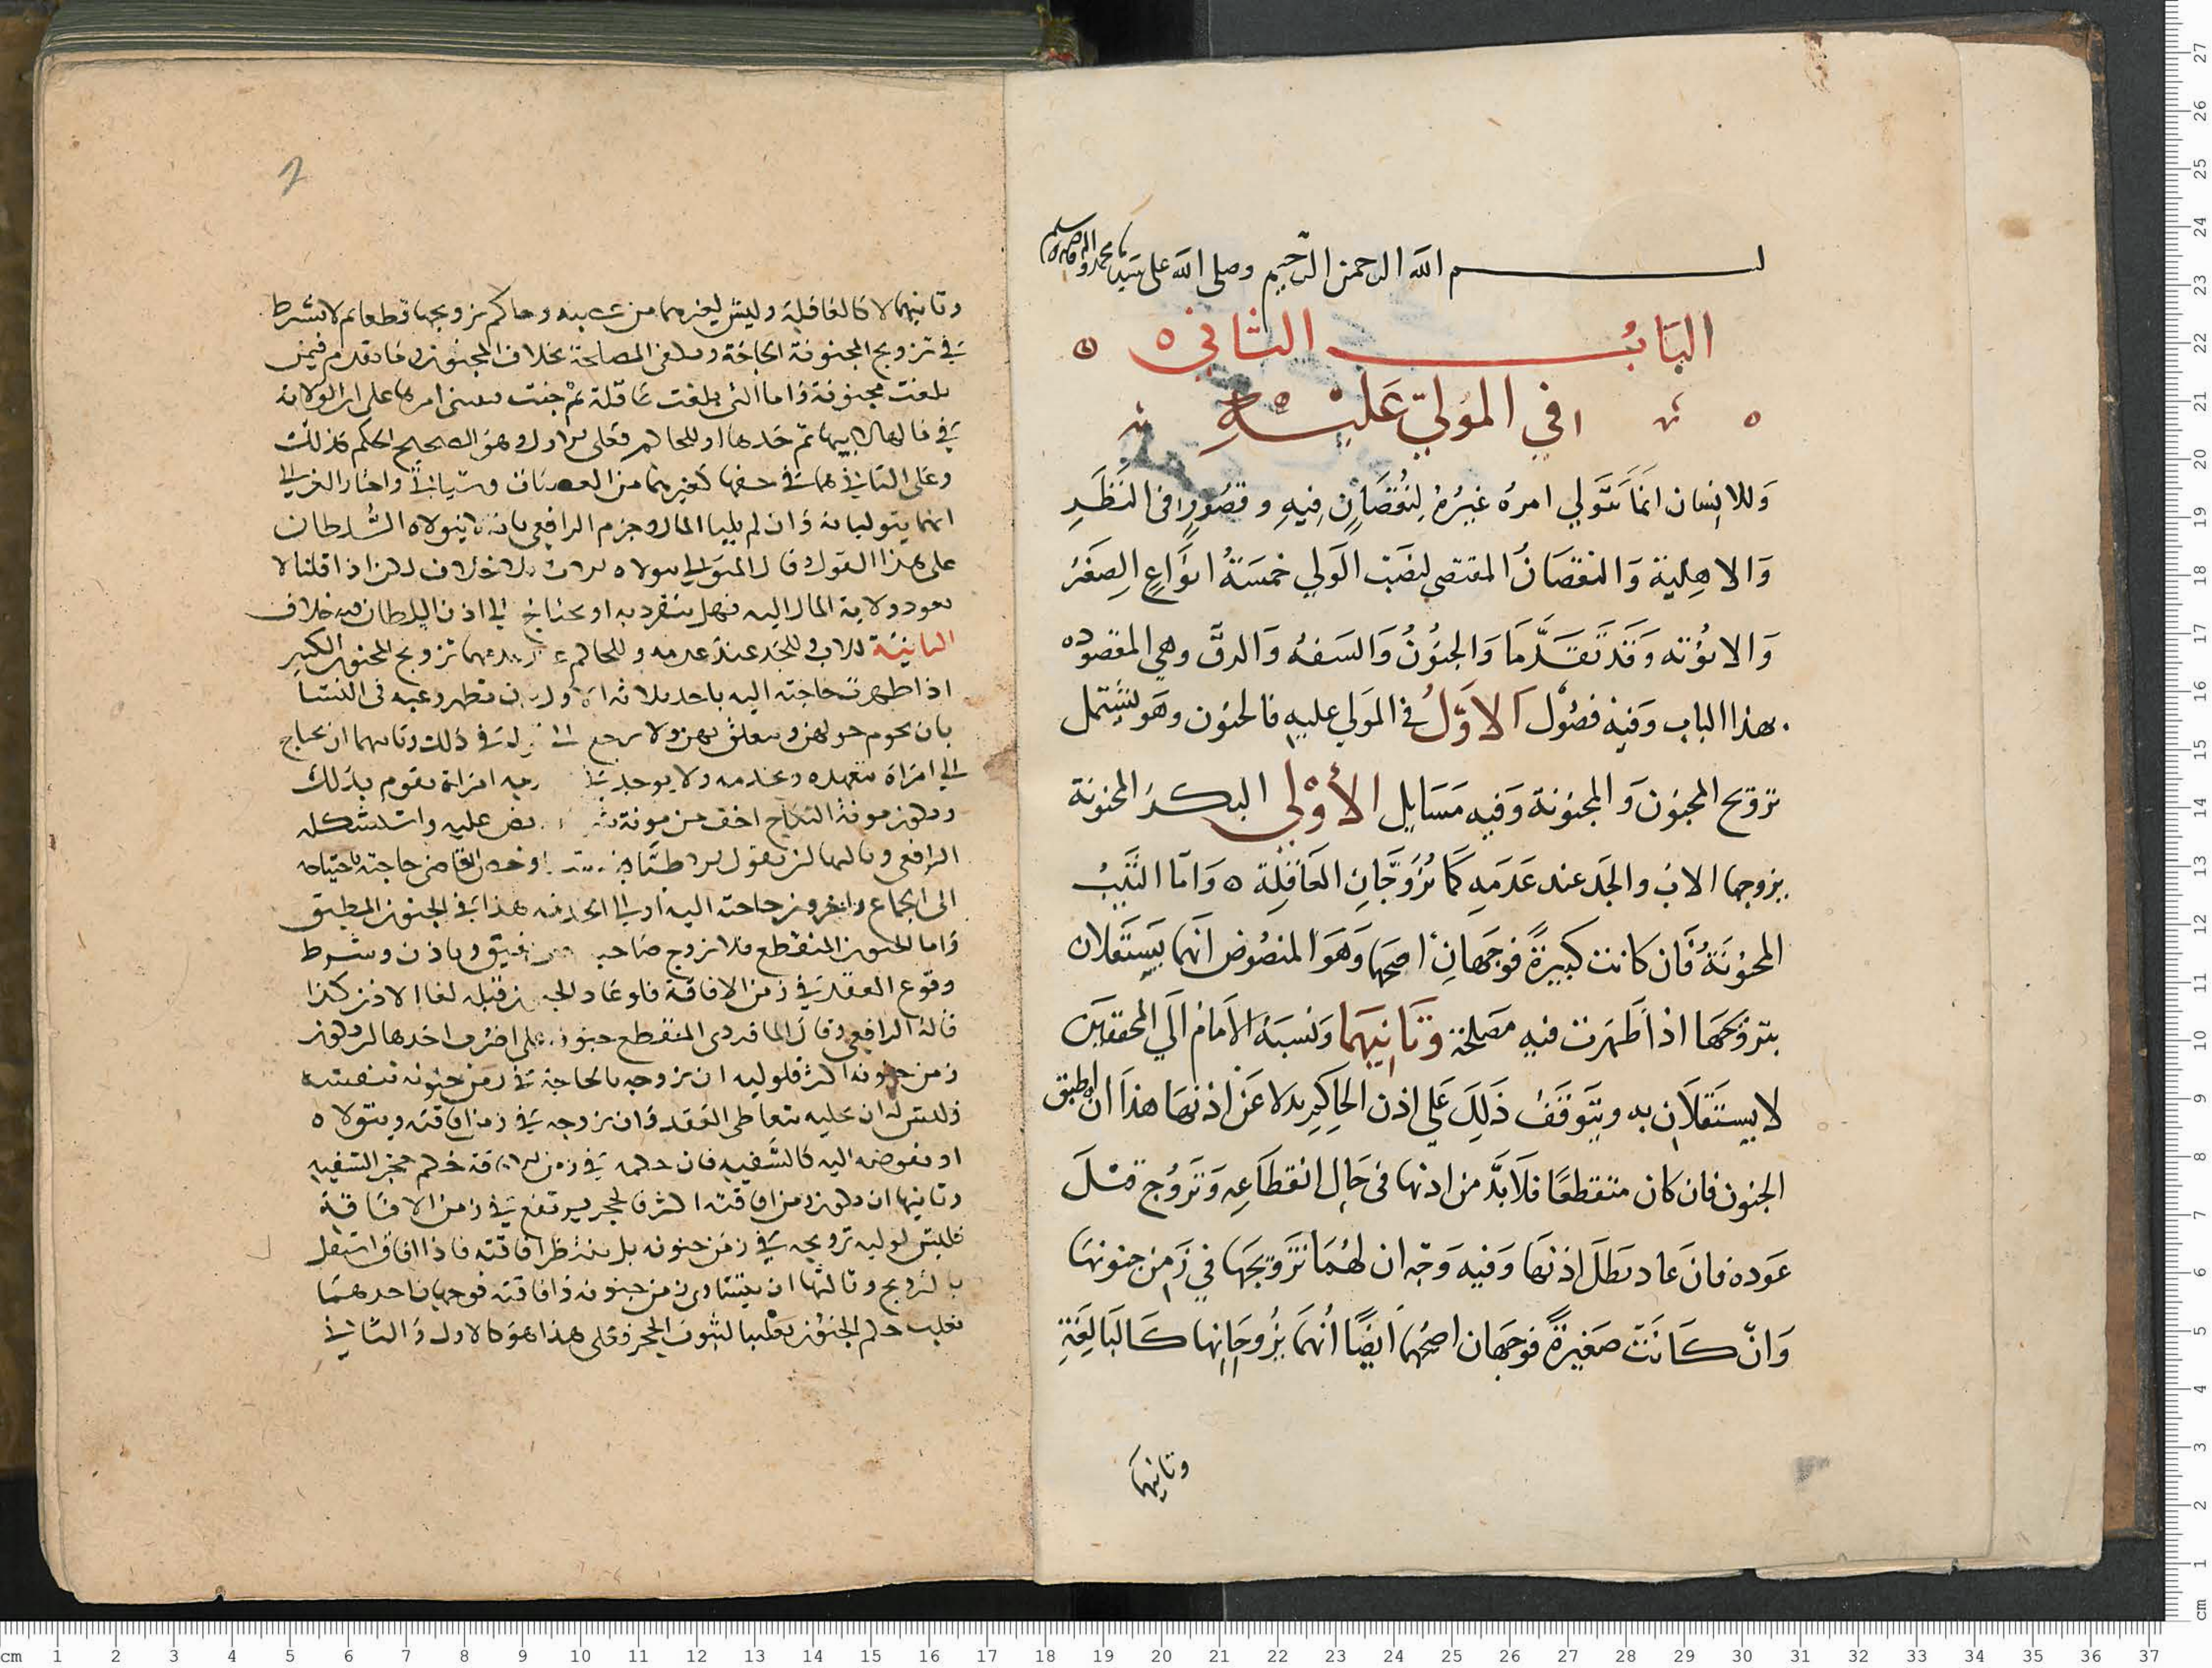 بسم الله الرحمن الرحيم وصلى الله على سيدنا محمد واله وصحبه وسلم
الباب الثاني
في المولي عليه
وللانسان انما يتولي امره غيره لنقصان فيه وقصور في النظر
والاهلية والنقصان المقتضي لنصب الولي خمسة انواع الصغر
والانوثه وقد تقدما والجنون والسفه والرق وهي المقصوده
بهذا الباب وفيه فصول الاول في المولي عليه بالجنون وهو يشتمل
تزويج المجنون والمجنونة وفيه مسايل الاولي البكر المجنونة
يزوجها الاب والجد عند عدمه كما يزوجان العاقلة ٥ واما الثيب
المجنونة فان كانت كبيرة فوجهان اصحهما وهو المنصوص انهما يستقلان
بتزويجها اذا ظهرت فيه مصلحة وثانيهما ونسبه الامام الي المحققين
لا يستقلان به ويتوقف ذلك علي اذن الحاكم بدلا عن اذنها هذا ان اطبق
الجنون فان كان متقطعا فلا بد من اذنها في حال انقطاعه وتزوج قبل
عوده فان عاد بطل اذنها وفيه وجه ان لهما تزويجها في زمن جنونها
وان كانت صغيرة فوجهان اصحهما ايضا انهما يزوجانها كالبالغة
وثانيهما
2
وثانيهما لا كالعاقلة وليس لغيرهما من عصبه وحاكم تزويجها قطعا ثم لا يشترط
في تزويج المجنونة الحاجة ويكفي المصلحة بخلاف المجنون وما تقدم فيمن
بلغت مجنونة واما التي بلغت عاقلة ثم جنت فيبني امرها على ان الولاية
في مالها لابيها ثم جدها او للحاكم فعلى الاول وهو الصحيح الحكم كذلك
وعلى الثاني هما في حقها كغيرهما من العصبات وسياتي واختار الغزالي
انهما يتوليانه وان لم يليا المال وجزم الرافعي بانه يتولاه السلطان
على هذا القول وقال المتولي يتولاه الاب بلا خلاف لكن اذا قلنا لا
تعود ولاية المال اليه فهل ينفرد به او يحتاج الي اذن السلطان فيه خلاف
الثانية للاب وللجد عند عدمه وللحاكم عند عدمهما تزويج المجنون الكبير
اذا ظهرت حاجته اليه باحد ثلاثة الاول ان تظهر رغبته في النسا
بان يحوم حولهن ويتعلق بهن ولا يرجع الي قوله في ذلك وثانيهما ان يحتاج
الي امراة تتعهده وتخدمه ولا يوجد في محارمه امراة تقوم بذلك
وتكون مونة النكاح اخف من مونة نص عليه واستشكله
الرافعي وثالثها ان يقول له الاطبا او خص القاضي حاجته باحتياجه
الى الجماع واخرون حاجته اليه او الي الخدمه هذا في الجنون المطبق
واما المجنون المنقطع فلا يزوج حتي يفيق وياذن وشرط
وقوع العقد في زمن الافاقة فلو عاد الجنون قبله لغا الاذن كذا
قاله الرافعي وقال الماوردي المنقطع جنونه على اضرب احدها ان يكون
زمن جنونه اكثر فلوليه ان يزوجه بالحاجة في زمن جنونه بنفسه
وليس له ان عليه يتعاطى العقد وان يزوجه في زمن افاقته ويتولاه
او يفوضه اليه كالسفيه فان حكمه في زمن الافاقة حكم حجر السفيه
وثانيها ان يكون زمن افاقته اكثر فالحجر يرتفع في زمن الافاقة
فليس لوليه تزويجه في زمن جنونه بل ينتظر افاقته فاذا افاق استقل
بالتزويج وثالثها ان يتساوى زمن جنونه وافاقته فوجهان احدهما
يغلب حكم الجنون تغليبا لثبوت الحجر فعلى هذا هو كالاول والثاني